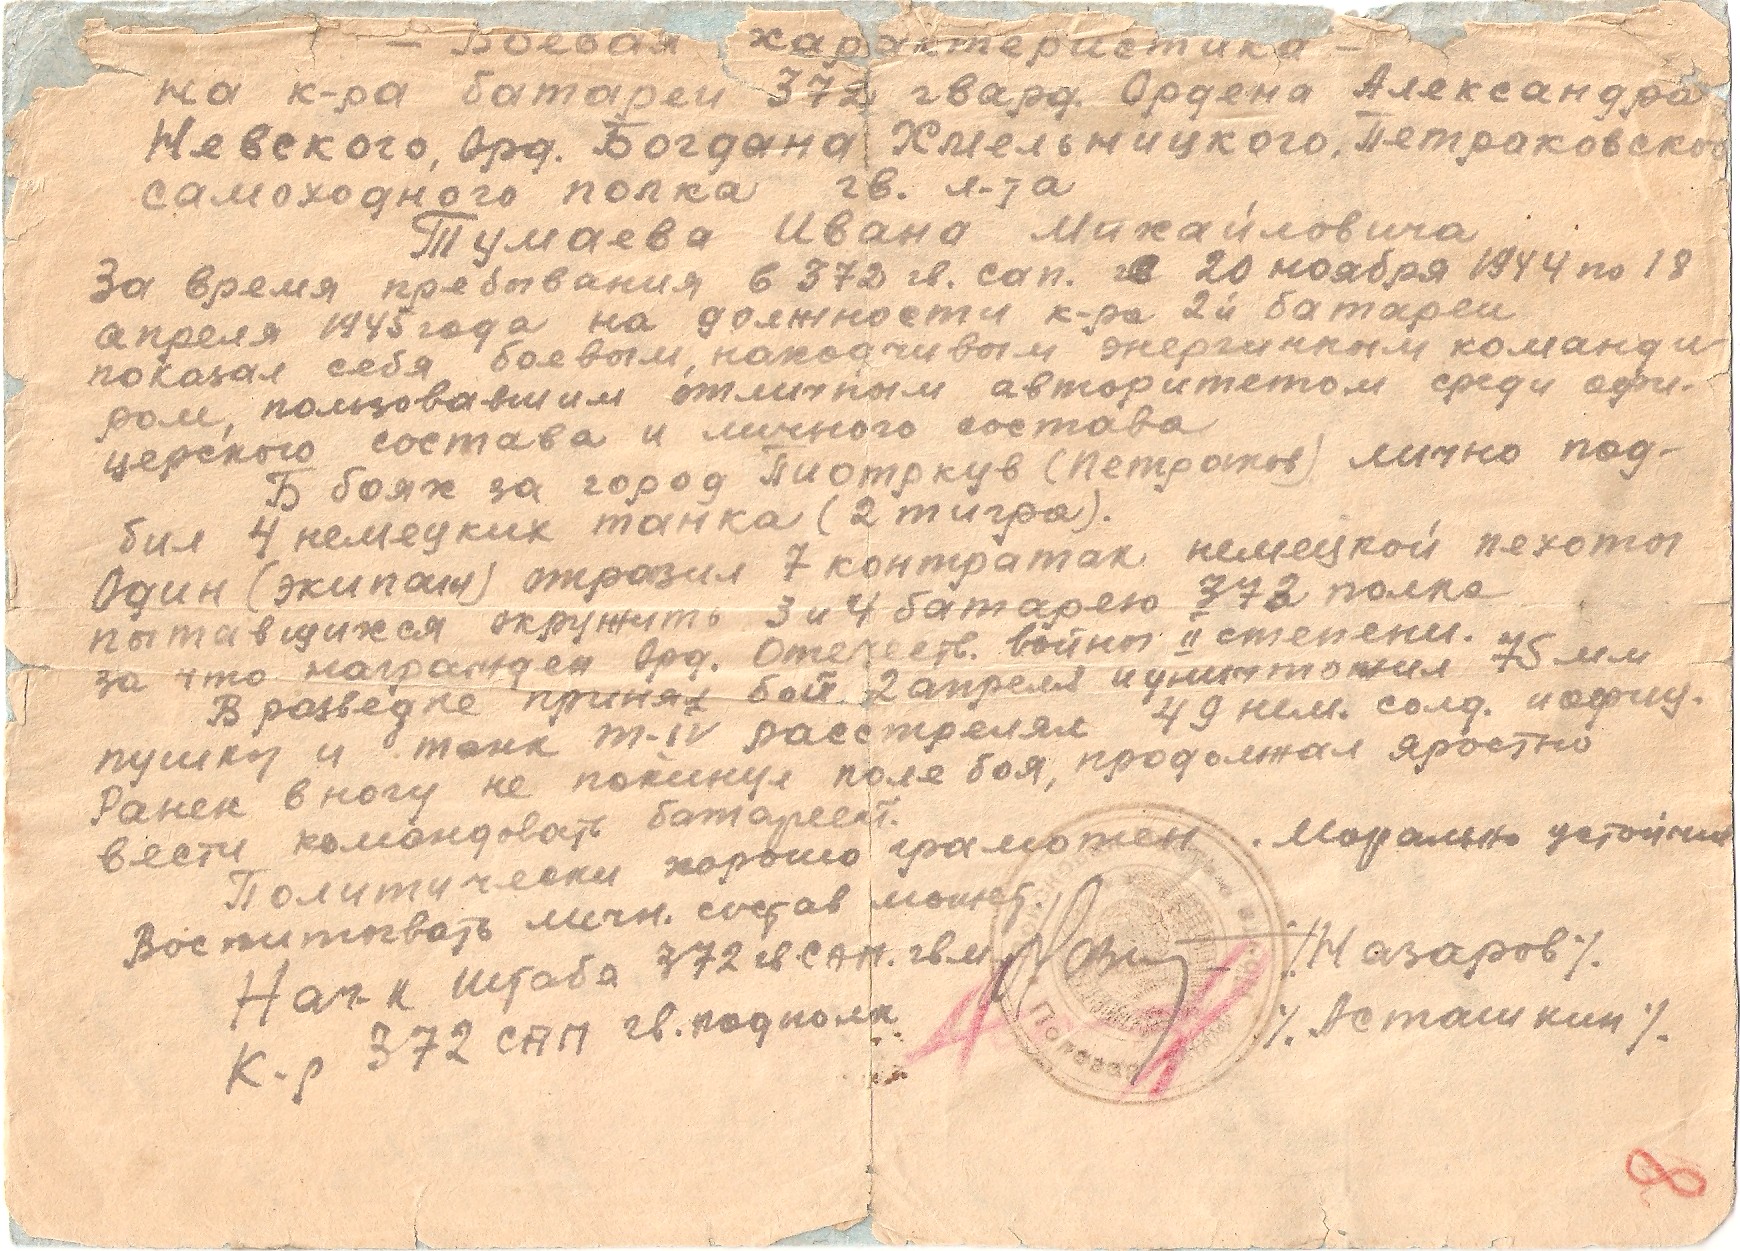 – Боевая характеристика –
на к-ра батареи 372 гвард. Ордена Александра
Невского, Орд. Богдана Хмельницкого, Петраковского
самоходного полка гв. л-та
Тумаева Ивана Михайловича
За время пребывания в 372 гв. сап. 20 ноября 1944 по 18
апреля 1945 года на должности к-ра 2й батареи
показал себя боевым, находчивым энергичным команди-
ром, пользовавшим отличным авторитетом среди офи-
церского состава и личного состава
В боях за город Пиотркув (Петраков) лично под-
бил 4 немецких танка (2 тигра).
Один (экипаж) отразил 7 контратак немецкой пехоты
пытавшихся окружить 3 и 4 батарею 372 полка
за что награжден Орд. Отечеств. войны II степени.
В разведке принял бой 2 апреля и уничтожил 75 мм
пушку и танк т-IV расстрелял 49 нем. солд. и офиц.
Ранен в ногу не покинул поле боя, продолжал яростно
вести командовать батареей.
Политически хорошо грамотен. Морально устойчив
Воспитывать личн. состав может.
Нач-к штаба 372 гв САП. гв. м. /Назаров/.
К-р 372 САП гв. подполк /.Асташкин/.
Полевая